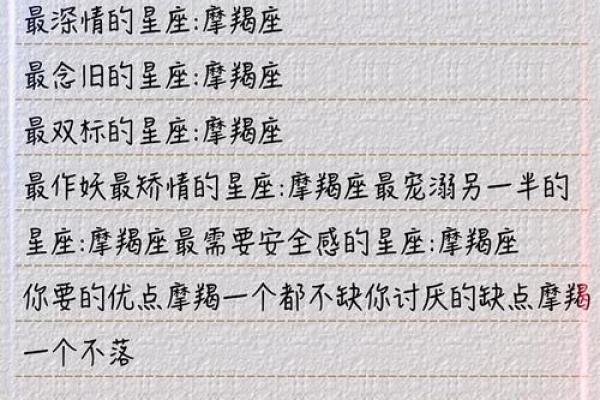 最深情的星座:摩羯座
最念旧的星座:摩羯座
最双标的星座:摩羯座
最作妖最矫情的星座:摩羯座最宠溺另一半的
星座:摩羯座最需要安全感的星座:摩羯座
你要的优点摩羯一个都不缺你讨厌的缺点摩羯
一个不落